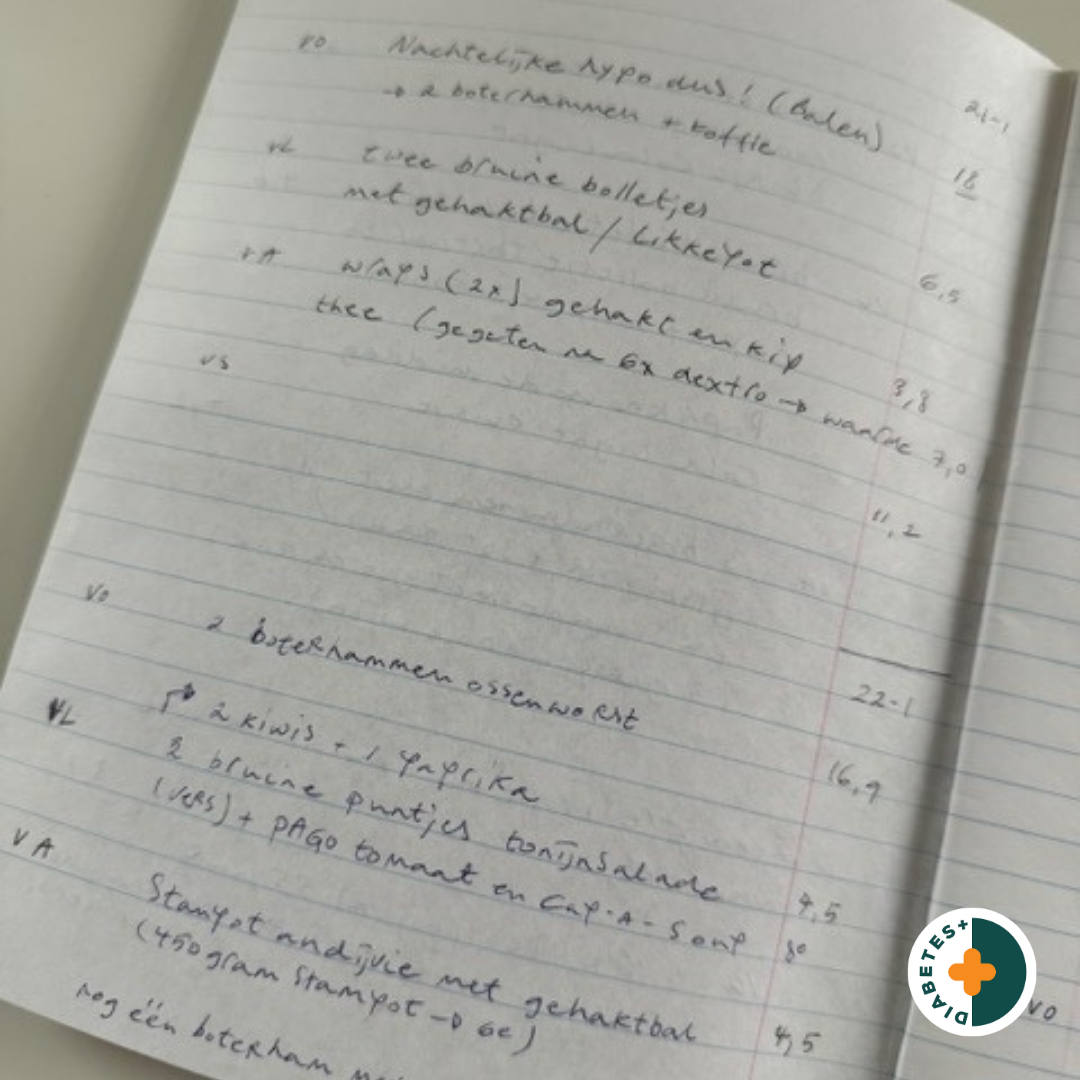 21-1
vo Nachtelijke hypo dus! (Balen) 18
→ 2 boterhammen + koffie
vL twee bruine bolletjes 6,5
met gehaktbal / Likkepot
vA wraps (2x) gehakt en kip 3,8
thee (gegeten na 6x dextro → waarde 7,0
vs 11,2
22-1
Vo 2 boterhammen ossenworst 16,9
→ 2 kiwis + 1 paprika
VL 2 bruine puntjes tonijnsalade 4,5
(vers) + PAGO tomaat en Cup-A-Soup
VA Stampot andijvie met gehaktbal 4,5
(450 gram Stampot → 6e)
nog één boterham
VO
DIABETES+